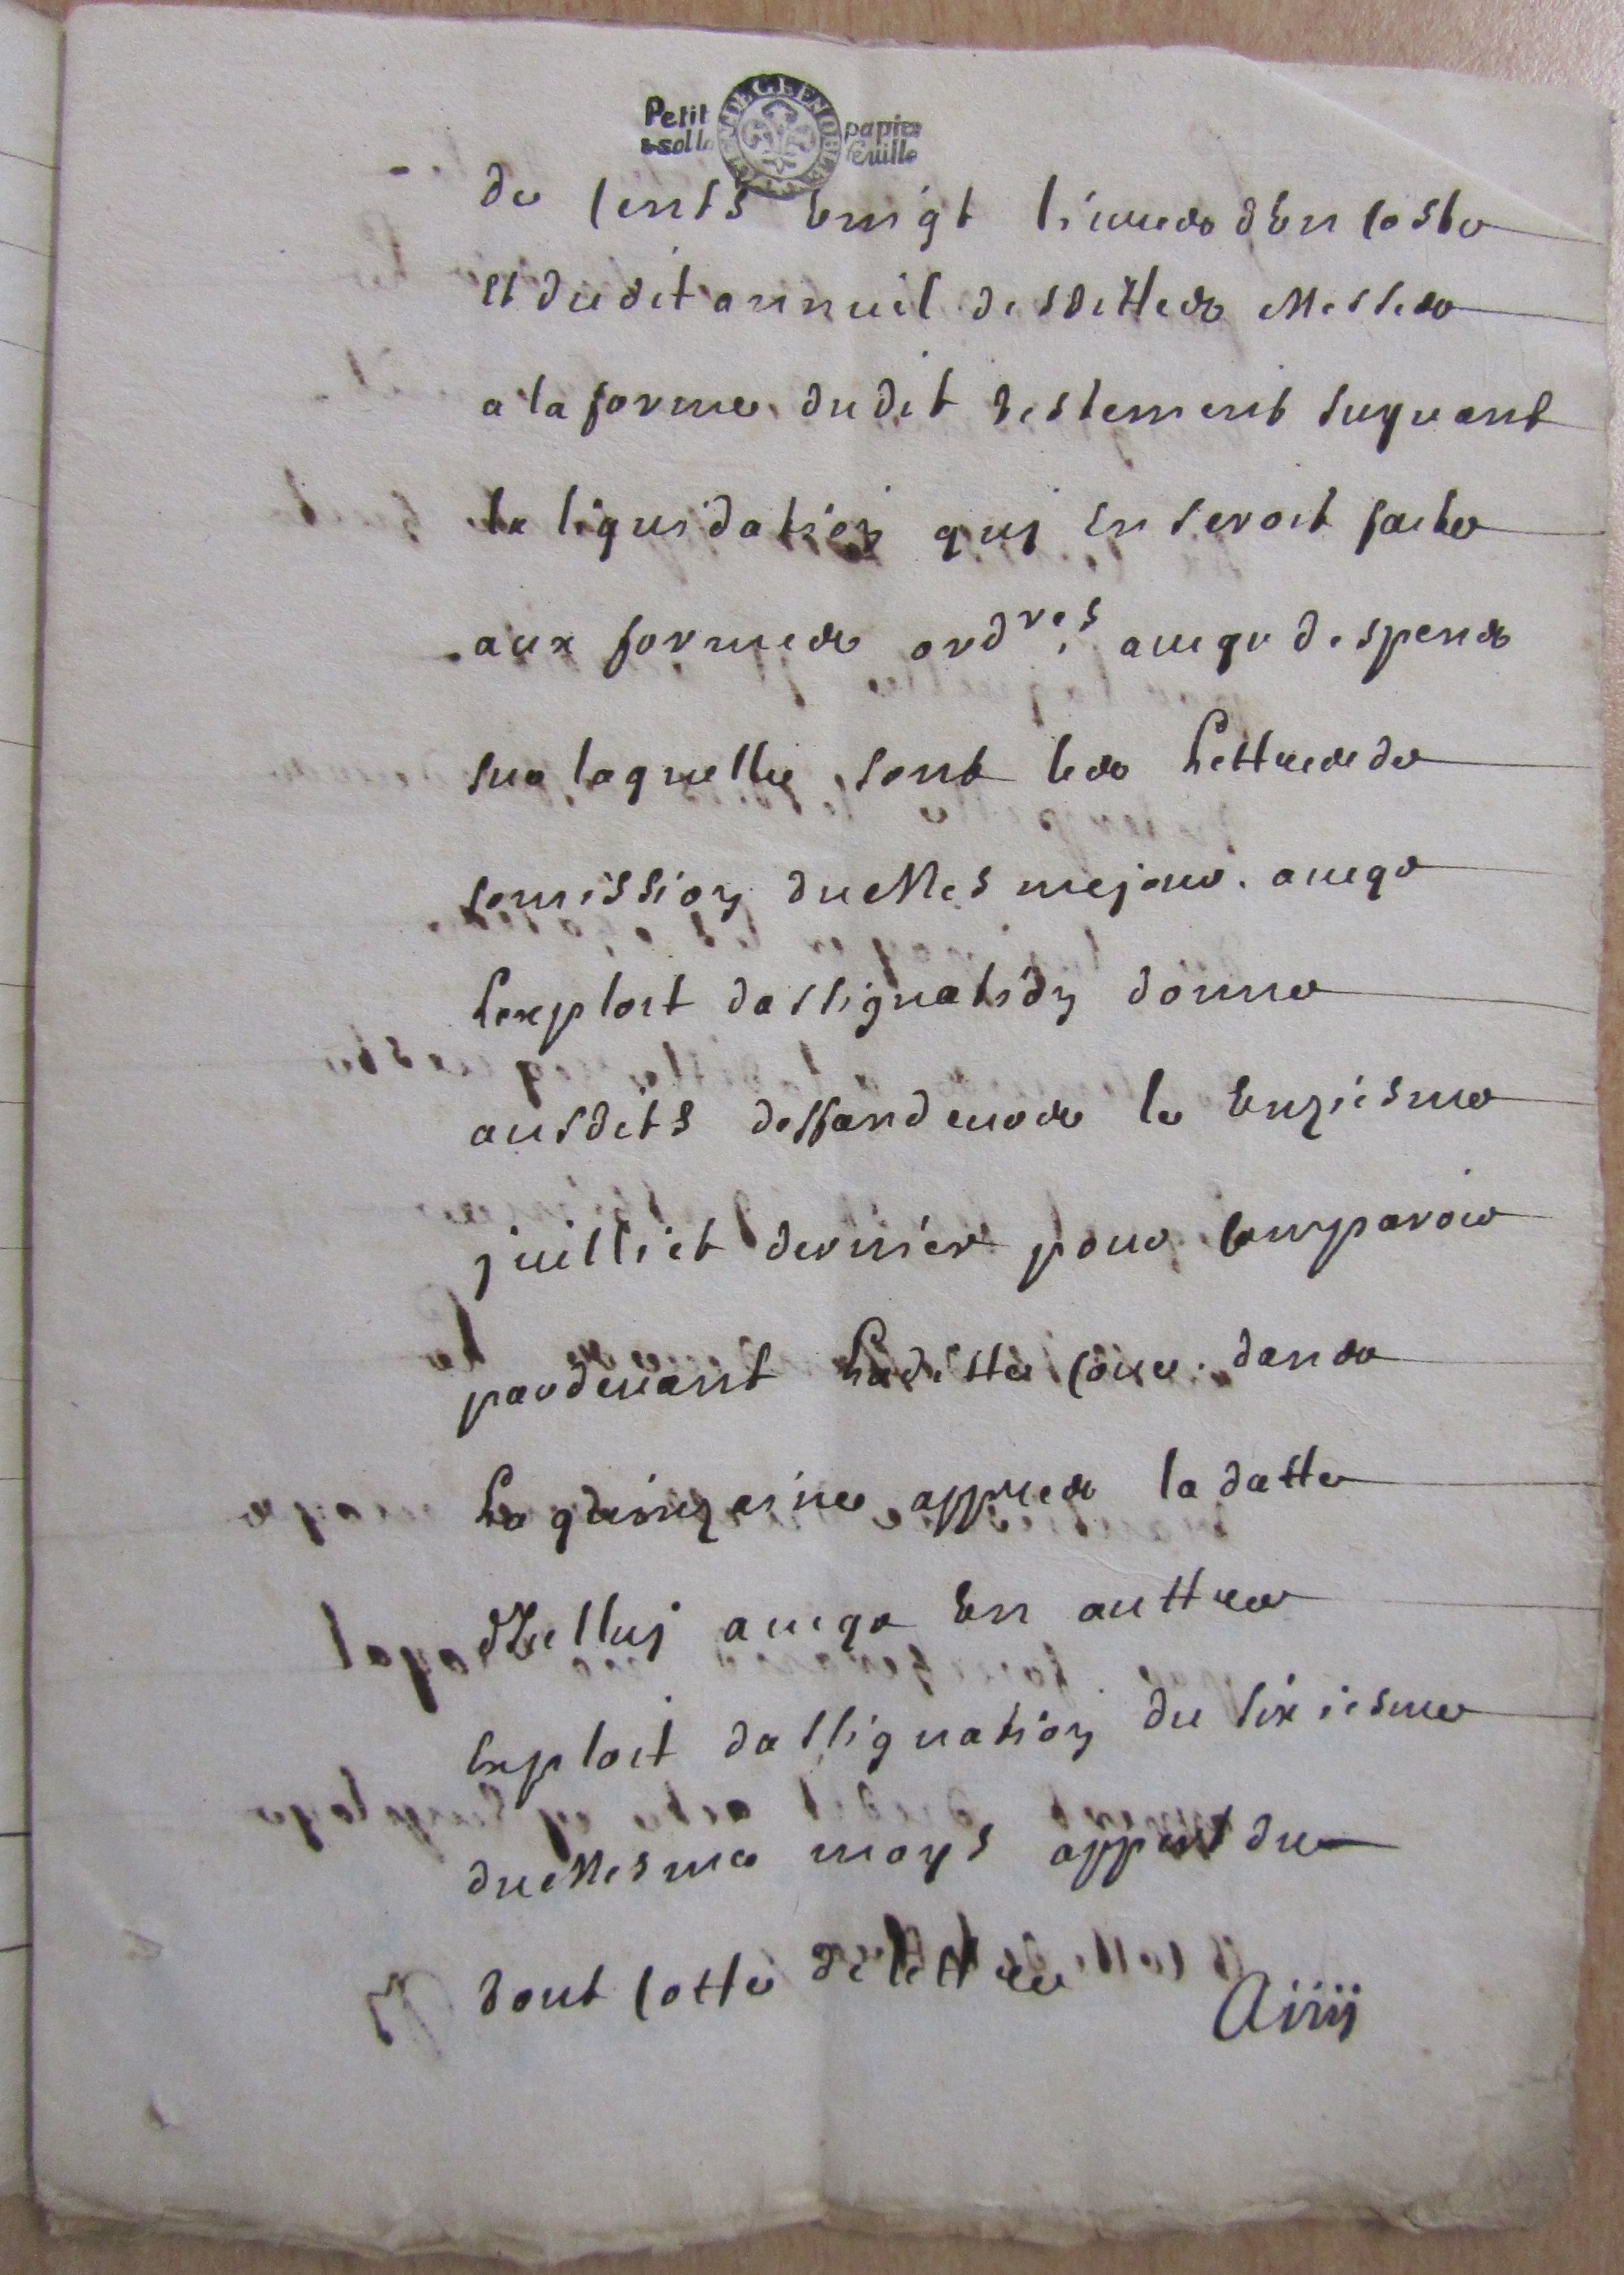 Petit papier
8 sols la feuille
de cents vingt livres d'un coste
et dudit annuel desdittes Messes
a la forme dudit testement suyvant
la liquidation quj en seroit faite
aux formes ordres avecque despens
sur laquelle sont les Lettres de
comission du Mesme jour avecq
Lexploit dassignation donne
ausdits deffandeurs le unziesme
juilliet dernier pour comparoir
pardevant Laditte cour dans
La quinzeine appres la datte
dIcelluj avecq un auttre
exploit dassignation du sixiesme
du Mesme moys appert du
tout cotte de lettre Aiiij